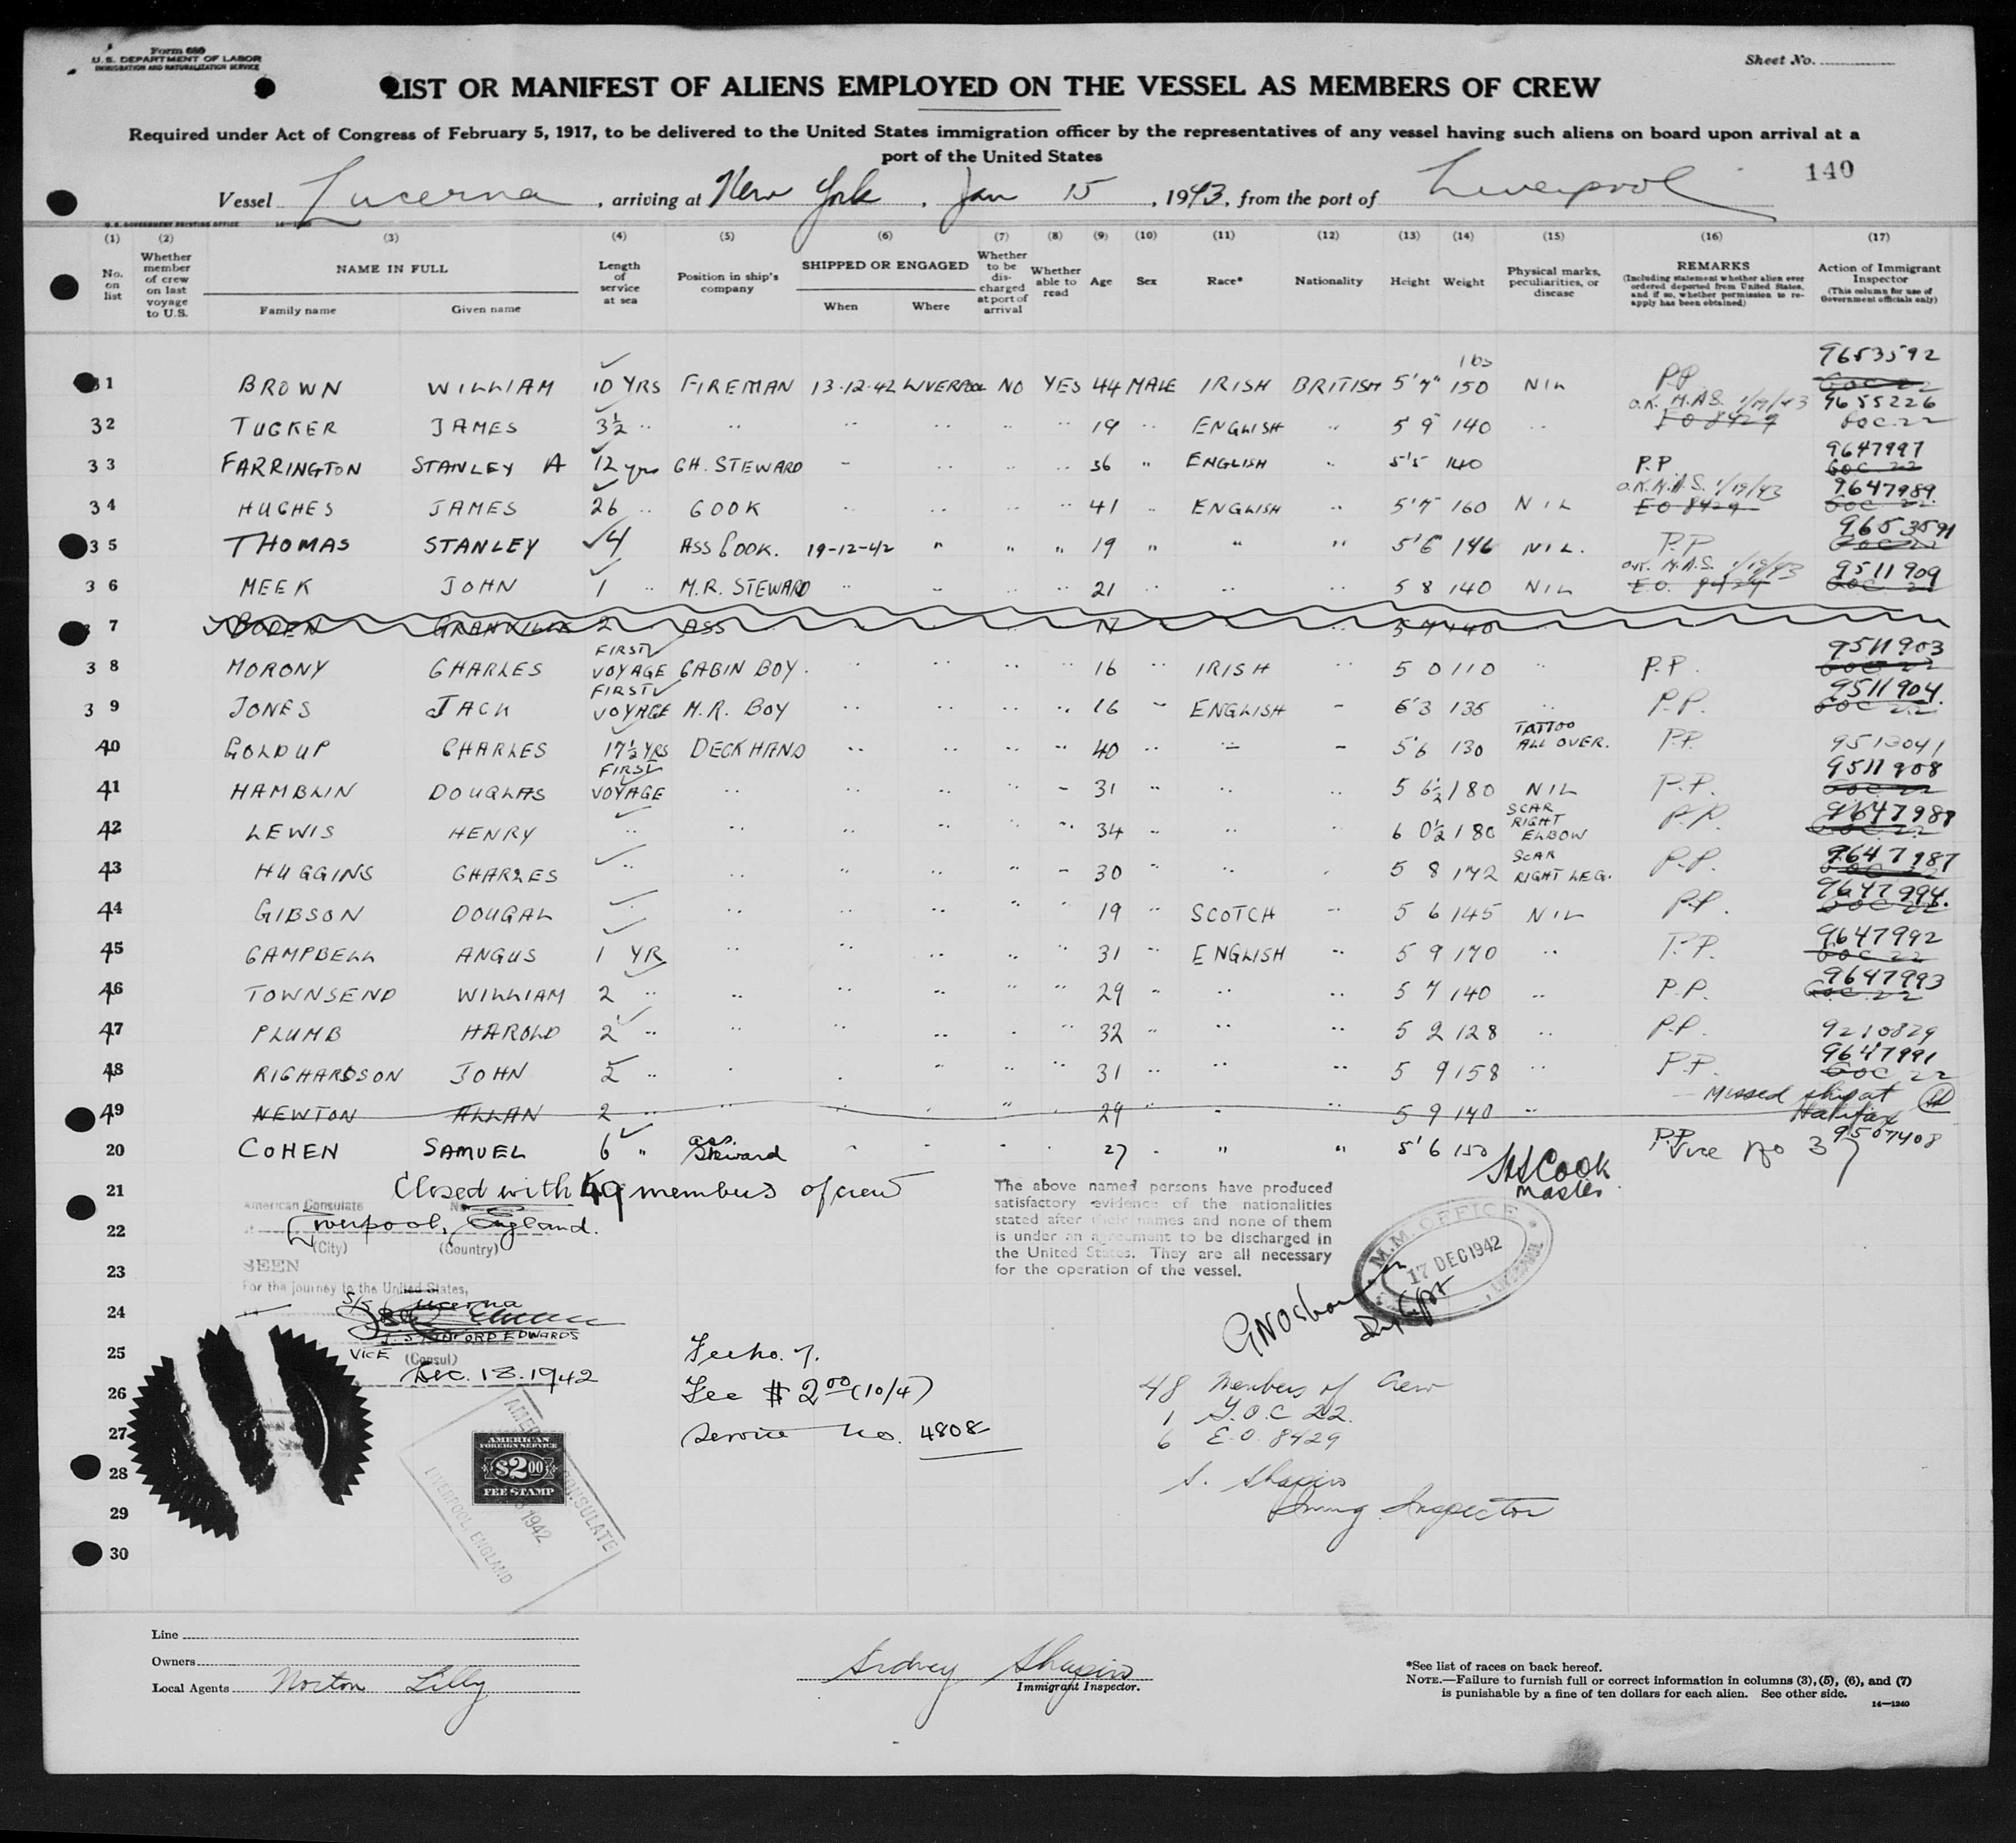 Form 680
U. S. DEPARTMENT OF LABOR
IMMIGRATION AND NATURALIZATION SERVICE
Sheet No.
LIST OR MANIFEST OF ALIENS EMPLOYED ON THE VESSEL AS MEMBERS OF CREW
Required under Act of Congress of February 5, 1917, to be delivered to the United States immigration officer by the representatives of any vessel having such aliens on board upon arrival at a
port of the United States
140
Vessel Lucerna, arriving at New York, Jan 15, 1943, from the port of Liverpool
U. S. GOVERNMENT PRINTING OFFICE
(1) (2) (3) (4) (5) (6) (7) (8) (9) (10) (11) (12) (13) (14) (15) (16) (17)
No. on list
Whether member of crew on last voyage to U.S.
NAME IN FULL
Family name Given name
Length of service at sea
Position in ship's company
SHIPPED OR ENGAGED
When Where
Whether to be discharged at port of arrival
Whether able to read
Age Sex Race* Nationality Height Weight
Physical marks, peculiarities, or disease
REMARKS
(Including statement whether alien ever ordered deported from United States, and if so, whether permission to reapply has been obtained)
Action of Immigrant Inspector
(This column for use of Government officials only)
lbs 9653592
31 BROWN WILLIAM 10 YRS FIREMAN 13-12-42 LIVERPOOL NO YES 44 MALE IRISH BRITISH 5'7" 150 NIL P.P. GOC 22
O.K. M.A.S. 1/19/43 9655226
32 TUCKER JAMES 3½ " " " " " " 19 " ENGLISH " 5 9 140 " EO 8429 GOC 22
9647997
33 FARRINGTON STANLEY A 12 yrs CH. STEWARD " " " " 36 " ENGLISH " 5'5 140 P.P GOC 22
O.K. M.A.S. 1/19/43 9647989
34 HUGHES JAMES 26 " COOK " " " " 41 " ENGLISH " 5'7 160 NIL EO 8429 GOC 22
9653591
35 THOMAS STANLEY 4 ASS COOK. 19-12-42 " " " 19 " " " 5'6 146 NIL. P.P GOC 22
O.K. M.A.S. 1/19/43 9511909
36 MEEK JOHN 1 " M.R. STEWARD " " " " 21 " " " 5 8 140 NIL E.O. 8429 GOC 22
7 BODEN GRANVILLE 2 ASS " " " " 17 " " 5 7 140
FIRST 9511903
38 MORONY CHARLES VOYAGE CABIN BOY. " " " " 16 " IRISH " 5 0 110 " P.P. GOC 22
FIRST 9511904
39 JONES JACK VOYAGE M.R. BOY " " " " 16 " ENGLISH " 5'3 135 " P.P. GOC 22
TATTOO
40 GOLDUP CHARLES 17½ YRS DECK HAND " " " " 40 " " " 5'6 130 ALL OVER. P.P. 9513041
FIRST 9511908
41 HAMBLIN DOUGLAS VOYAGE " " " " " 31 " " " 5 6½ 180 NIL P.P. GOC 22
SCAR 9647988
42 LEWIS HENRY " " " " " " 34 " " " 6 0½ 180 RIGHT ELBOW P.P. GOC 22
SCAR 9647987
43 HUGGINS CHARLES " " " " " " 30 " " " 5 8 172 RIGHT LEG. P.P. GOC 22
9647994
44 GIBSON DOUGAL " " " " " 19 " SCOTCH " 5 6 145 NIL P.P. GOC 22
9647992
45 CAMPBELL ANGUS 1 YR " " " " " 31 " ENGLISH " 5 9 170 " P.P. GOC 22
9647993
46 TOWNSEND WILLIAM 2 " " " " " " 29 " " " 5 7 140 " P.P. GOC 22
47 PLUMB HAROLD 2 " " " " " " 32 " " " 5 2 128 " P.P. 9210829
9647991
48 RICHARDSON JOHN 2 " " " " " " 31 " " " 5 9 158 " P.P. GOC 22
Missed ship at
49 NEWTON ALLAN 2 " " " " " " 29 " " " 5 9 140 " Halifax
20 COHEN SAMUEL 6 " ass. Steward " " " " 27 " " " 5'6 150 P.P. Vice No 37 9507408
H S Cook
Master
21 Closed with 49 members of crew
American Consulate
The above named persons have produced
satisfactory evidence of the nationalities
stated after their names and none of them
is under an agreement to be discharged in
the United States. They are all necessary
for the operation of the vessel.
22 Liverpool, England.
(City) (Country)
23 SEEN
For the journey to the United States,
24 S/S Lucerna
M.M. OFFICE
17 DEC 1942
LIVERPOOL
J. STANFORD EDWARDS
25 VICE (Consul)
Dec. 18. 1942
Fee No. 7.
26 Fee $ 2.00 (10/4)
27 Service No. 4808
28
29
30
48 Members of Crew
1 G.O.C 22.
6 E.O. 8429
S. Shapiro
Immig. Inspector
AMERICAN
FOREIGN SERVICE
$2.00
FEE STAMP
AMERICAN CONSULATE
1942
LIVERPOOL, ENGLAND
Line
Owners
Local Agents Norton Lilly
Sidney Shapiro
Immigrant Inspector.
*See list of races on back hereof.
NOTE.—Failure to furnish full or correct information in columns (3), (5), (6), and (7)
is punishable by a fine of ten dollars for each alien. See other side.
14—1240